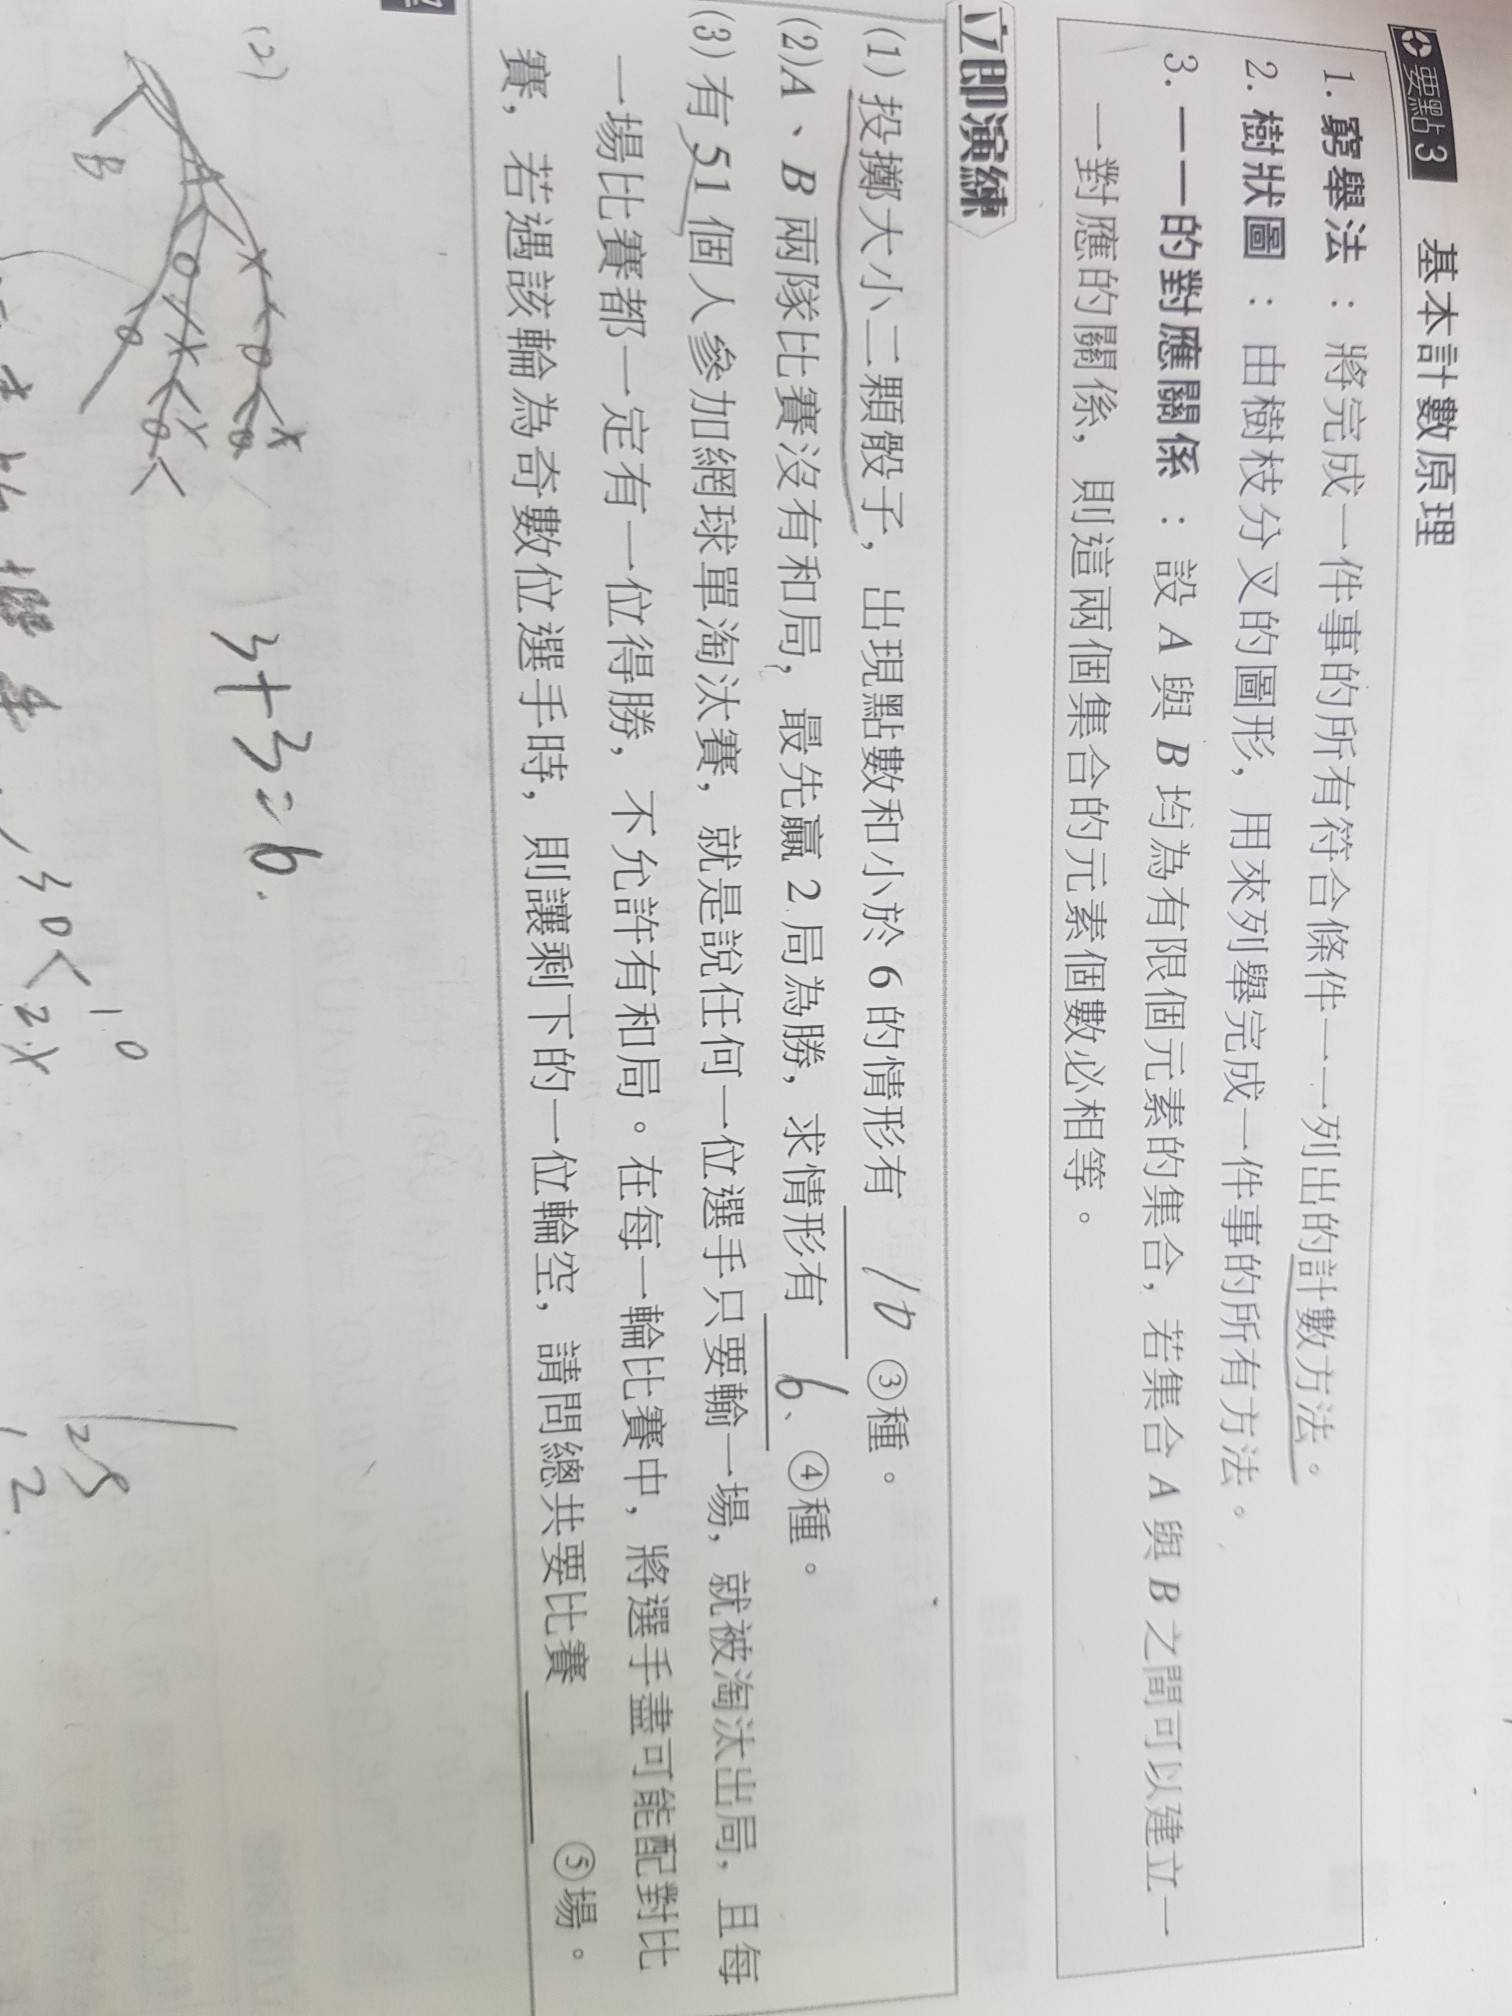 要點3 基本計數原理
1. 窮舉法：將完成一件事的所有符合條件一一列出的計數方法。
2. 樹狀圖：由樹枝分叉的圖形，用來列舉完成一件事的所有方法。
3. 一一的對應關係：設 A 與 B 均為有限個元素的集合，若集合 A 與 B 之間可以建立一
一對應的關係，則這兩個集合的元素個數必相等。
立即演練
(1) 投擲大小二顆骰子，出現點數和小於 6 的情形有 10 ③種。
(2) A、B 兩隊比賽沒有和局，最先贏 2 局為勝，求情形有 6、④種。
(3) 有 51 個人參加網球單淘汰賽，就是說任何一位選手只要輸一場，就被淘汰出局，且每
一場比賽都一定有一位得勝，不允許有和局。在每一輪比賽中，將選手盡可能配對比
賽，若遇該輪為奇數位選手時，則讓剩下的一位輪空，請問總共要比賽 ⑤場。
(2)
A
B
3+3=6.
30
10
2X
25
12